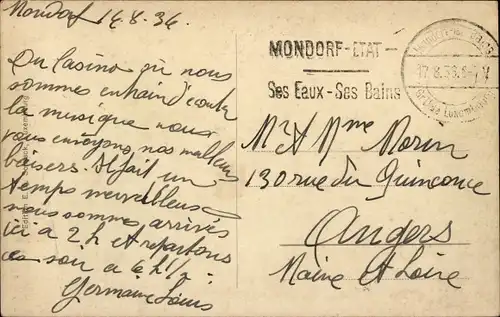 Mondorf 14.8.34
Du Casino où nous
sommes entrain d'écouter
la musique nous
vous envoyons nos meilleurs
baisers. Il fait un
temps merveilleux
nous sommes arrivés
ici à 2 h et repartons
ce soir à 6 h 1/2
Germaine Louis
MONDORF-ETAT-
Ses Eaux - Ses Bains
Mr & Mme Morin
130 rue du Quinconce
Angers
Maine et Loire